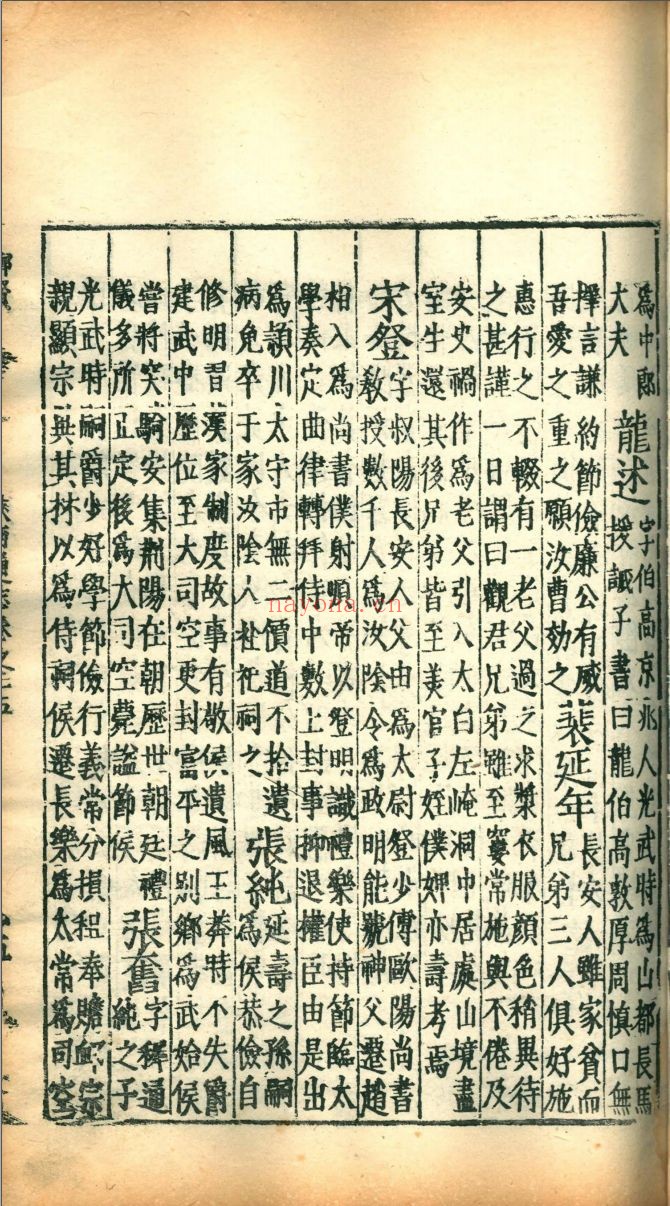 為中郎
大夫
龍述
字伯高京兆人光武時為山都長馬
援誡子書曰龍伯高敦厚周慎口無
擇言謙約節儉廉公有威
吾愛之重之願汝曹効之
裴延年
長安人雖家貧而
兄弟三人俱好施
惠行之不輟有一老父過之求漿衣服顏色稍異待
之甚謹一日謂曰觀君兄弟雖至窶常施與不倦及
安史禍作為老父引入太白左崦洞中居處山境盡
室生還其後兄弟皆至美官子姪僕婢亦壽考焉
宋登
字叔陽長安人父由為太尉登少傳歐陽尚書
教授數千人為汝陰令為政明能號神父遷趙
相入為尚書僕射順帝以登明識禮樂使持節臨太
學奏定曲律轉拜侍中數上封事抑退權臣由是出
為頴川太守市無二價道不拾遺
病免卒于家汝陰人社祀祠之
張純
延壽之孫嗣
為侯恭儉自
修明習漢家制度故事有敬侯遺風王莽時不失爵
建武中歷位至大司空更封富平之别鄉為武始侯
嘗將突騎安集荆陽在朝歷世朝廷禮
儀多所正定後為大司空薨謚節侯
張奮
字穉通
純之子
光武時嗣爵少好學節儉行義常分損租奉贍䘏宗
親顯宗其材以為侍祠侯遷長樂為太常為司空
nayona.vn